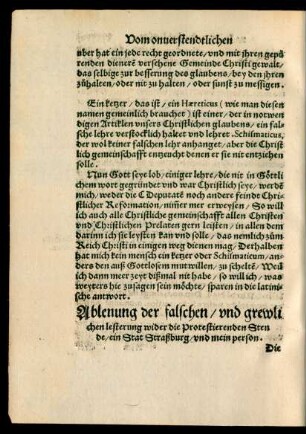 Vom onuerstendtlichen
aber hat ein jede recht geordnete / vnd mit jhren gepü-
renden dienerē versehene Gemeinde Christi gewalt /
das selbige zur besserung des glaubens / bey den jhren
zůhalten / oder nit zu halten / oder sunst zu messigen.
Ein ketzer / das ist / ein Hæreticus (wie man diesen
namen gemeinlich brauchet) ist einer / der in notwen
digen Artiklen vnsers Christlichen glaubens / ein fal-
sche lehre verstocklich haltet vnd lehret. Schismaticus,
der wol keiner falschen lehr anhanget / aber die Christ
lich gemeinschafft entzeucht denen er sie nit entziehen
solle.
Nun Gott seye lob / einiger lehre / die nit in Götli-
chem wort gegründet vnd war Christlich seye / werdē
mich / weder die C Deputatē noch andere feinde Christ
licher Reformation / nim̄er mer erweysen / So will
ich auch alle Christliche gemeinschafft allen Christen
vnd Christlichen Prelaten gern leisten / in allem dem
darinn ich sie leysten kan vnd solle / das nemlich zům
Reich Christi in einigen weg dienen mag. Derhalben
hat mich kein mensch ein ketzer oder Schismaticum / an-
derst den auß Gottlosem mutwillē / zu scheltē. Weil
ich dann mer zeyt dißmal nit habe / so will ich / was
weyters hie zusagen sein möchte / sparen in die latini-
sche antwort.
Ablenung der falschen / vnd grewli
chen lesterung wider die Protestierenden Sten
de / ein Stat Straßburg / vnd mein person.
Die